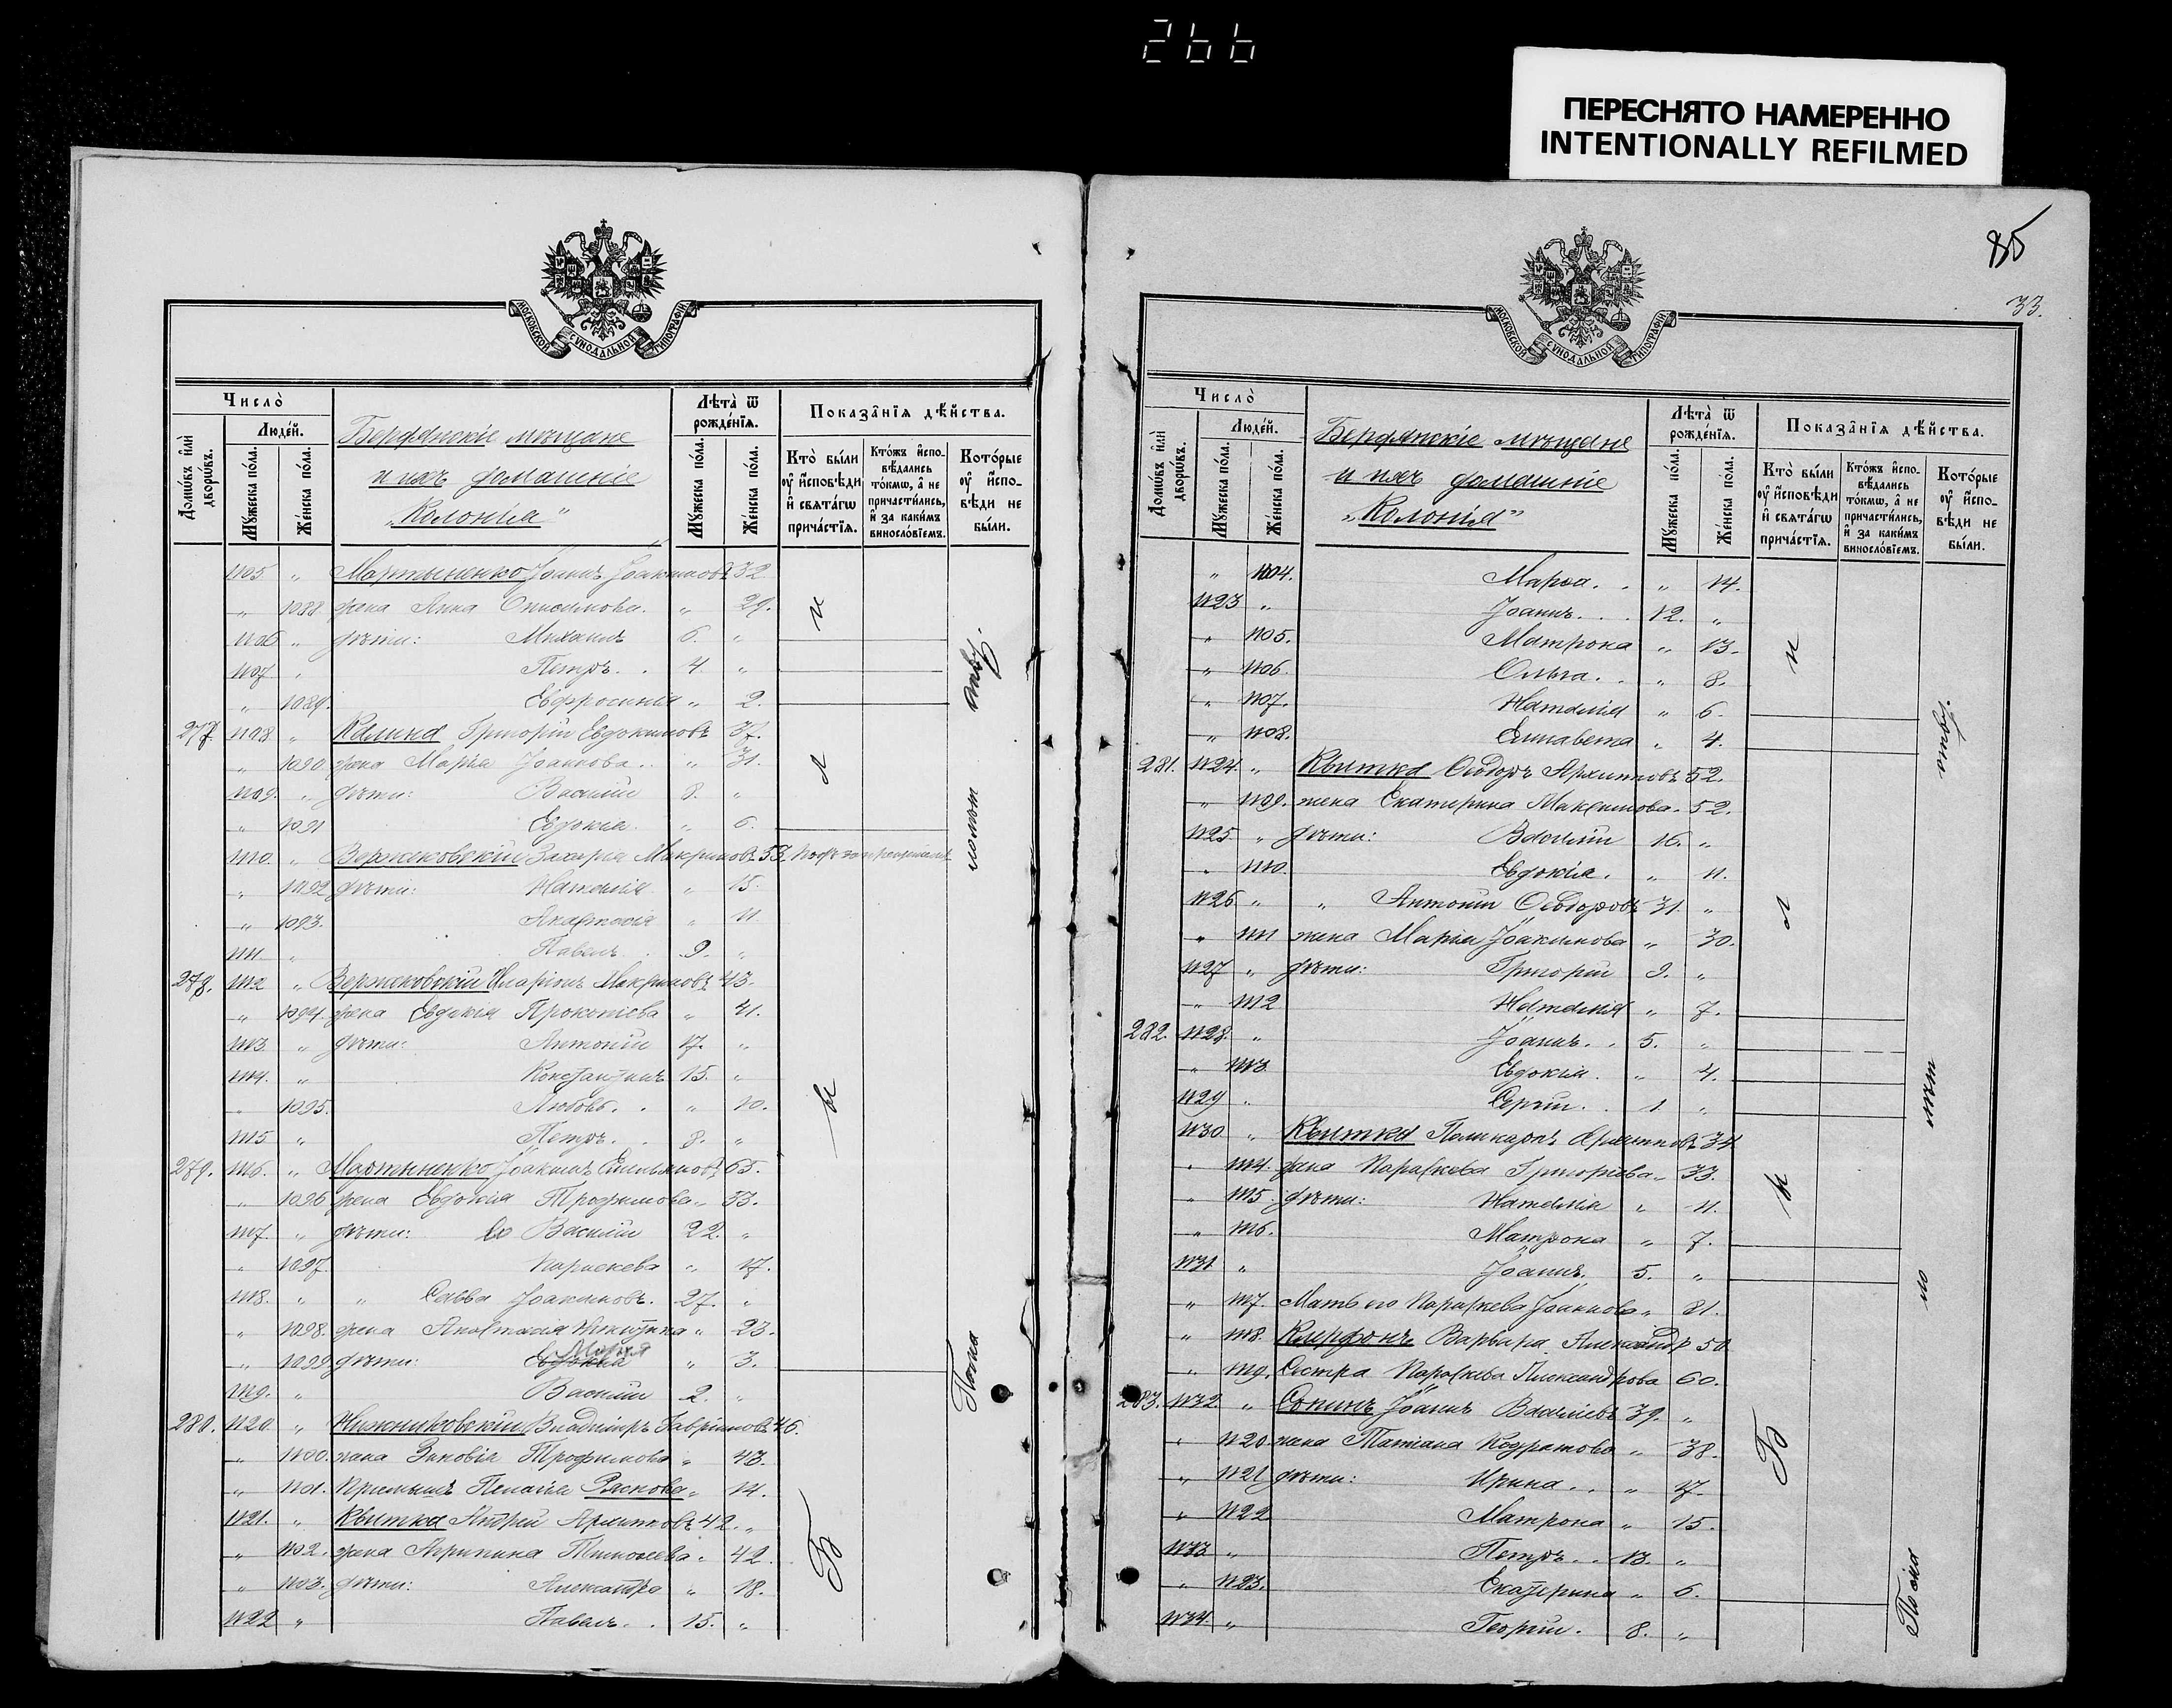 266
ПЕРЕСНЯТО НАМЕРЕННО
INTENTIONALLY REFILMED
МОСКОВСКОЙ СѴНОДАЛЬНОЙ ТИПОГРАФІИ
Число̀
Домѡ́въ и҆лѝ дворѡ́въ.
Люде́й.
Мꙋ́жеска по́ла.
Же́нска по́ла.
Бердянскіе мѣщане
и ихъ домашніе
„Колонія"
Лѣта̀ ѿ рожде́нїѧ.
Мꙋ́жеска по́ла.
Же́нска по́ла.
Показа̑нїѧ дѣ́йства.
Кто̀ бы́ли оу҆ и҆сповѣ́ди и҆ свѧта́гѡ прича́стїѧ.
Кто́жъ и҆спо-вѣ́дались то́кмѡ, а҆ не причасти́лись, и҆ за каки́мъ винослов́їемъ.
Кото́рые оу҆ и҆спо-вѣ́ди не бы́ли.
1105 „ Мартыненко Іоаннъ Іоакимовъ 32
„ 1088 жена Анна Онисимова. „ 29.
1106 „ дѣти: Михаилъ 6. „
1107 „ Петръ. . 4. „
„ 1089. Евфросинія „ 2.
277 1108 „ Калина Григорій Евдокимовъ 37.
„ 1090 жена Марія Іоаннова. . „ 31.
1109. „ дѣти: Василій 8. „
„ 1091 Евдокія. „ 6.
1110. „ Вержиковскій Захарія Макриновъ 53.
„ 1092 дѣти: Наталія „ 15.
„ 1093. Анастасія „ 11.
1111 „ Павелъ. . 9. „
278. 1112 „ Вержиковскій Иларіонъ Макриновъ 43.
„ 1094. жена Евдокія Прокопіева „ 41.
1113 „ дѣти: Антоній 17. „
1114. „ Константинъ 15. „
„ 1095. Любовь. . „ 10.
1115 „ Петръ. . 8. „
279. 1116. „ Мартыненко Іоакимъ Емельяновъ 65.
„ 1096 жена Евдокія Трофимова „ 53.
1117 „ дѣти: Василій 22. „
„ 1097. Параскева „ 17.
1118. „ „ Савва Іоакимовъ. 27. „
„ 1098. жена Анастасія Никитина „ 23.
„ 1099 дѣти: Марія „ 3.
1119. „ Василій 2. „
280. 1120. „ Нижниковскій Владиміръ Гавріиловъ 46.
„ 1100. жена Зиновія Трофимова „ 43.
„ 1101. Пріемышъ Пелагія Раскова „ 14.
1121. „ Квитка Андрей Архиповъ 42. „
„ 1102. жена Агрипина Тимоѳеева „ 42.
„ 1103. дѣти: Александра „ 18.
1122 „ Павелъ. . 15. „
Б
85
33.
МОСКОВСКОЙ СѴНОДАЛЬНОЙ ТИПОГРАФІИ
Число̀
Домѡ́въ и҆лѝ дворѡ́въ.
Люде́й.
Мꙋ́жеска по́ла.
Же́нска по́ла.
Бердянскіе мѣщане
и ихъ домашніе
„Колонія"
Лѣта̀ ѿ рожде́нїѧ.
Мꙋ́жеска по́ла.
Же́нска по́ла.
Показа̑нїѧ дѣ́йства.
Кто̀ бы́ли оу҆ и҆сповѣ́ди и҆ свѧта́гѡ прича́стїѧ.
Кто́жъ и҆спо-вѣ́дались то́кмѡ, а҆ не причасти́лись, и҆ за каки́мъ винослов́їемъ.
Кото́рые оу҆ и҆спо-вѣ́ди не бы́ли.
„ 1104. Марѳа. . „ 14.
1123 „ Іоаннъ. . . 12. „
„ 1105. Матрона „ 13.
„ 1106. Ольга. . „ 8.
„ 1107. Наталія „ 6.
„ 1108. Елисавета „ 4.
281. 1124. „ Квитка Ѳеодоръ Архиповъ 52.
„ 1109. жена Екатерина Максимова. 52.
1125. „ дѣти: Василій 16. „
„ 1110. Евдокія. „ 11.
1126 „ „ Антоній Ѳеодоровъ 31. „
„ 1111 жена Марія Іоакимова „ 30.
1127 „ дѣти: Григорій 9. „
„ 1112 Наталія „ 7.
282. 1128. „ Іоаннъ. . 5. „
„ 1113 Евдокія. „ 4.
1129 „ Сергій. . 1. „
1130 „ Квитка Поликарпъ Архиповъ 34
„ 1114. жена Параскева Григорьева „ 33.
„ 1115. дѣти: Наталія „ 11.
„ 1116. Матрона „ 7.
1131 „ Іоаннъ. 5. „
„ 1117. Мать его Параскева Іоаннова „ 81.
„ 1118. Варвара Александр 50
„ 1119. Сестра Параскева Александрова 60.
283. 1132 „ Іоаннъ Васильевъ 39. „
„ 1120 жена Татіана Кодратова „ 38.
„ 1121 дѣти: Ирина. . „ 17.
„ 1122 Матрона „ 15.
1133 „ Петръ. . 13. „
„ 1123. Екатерина „ 6.
1134. „ Георгій. 8. „
Б